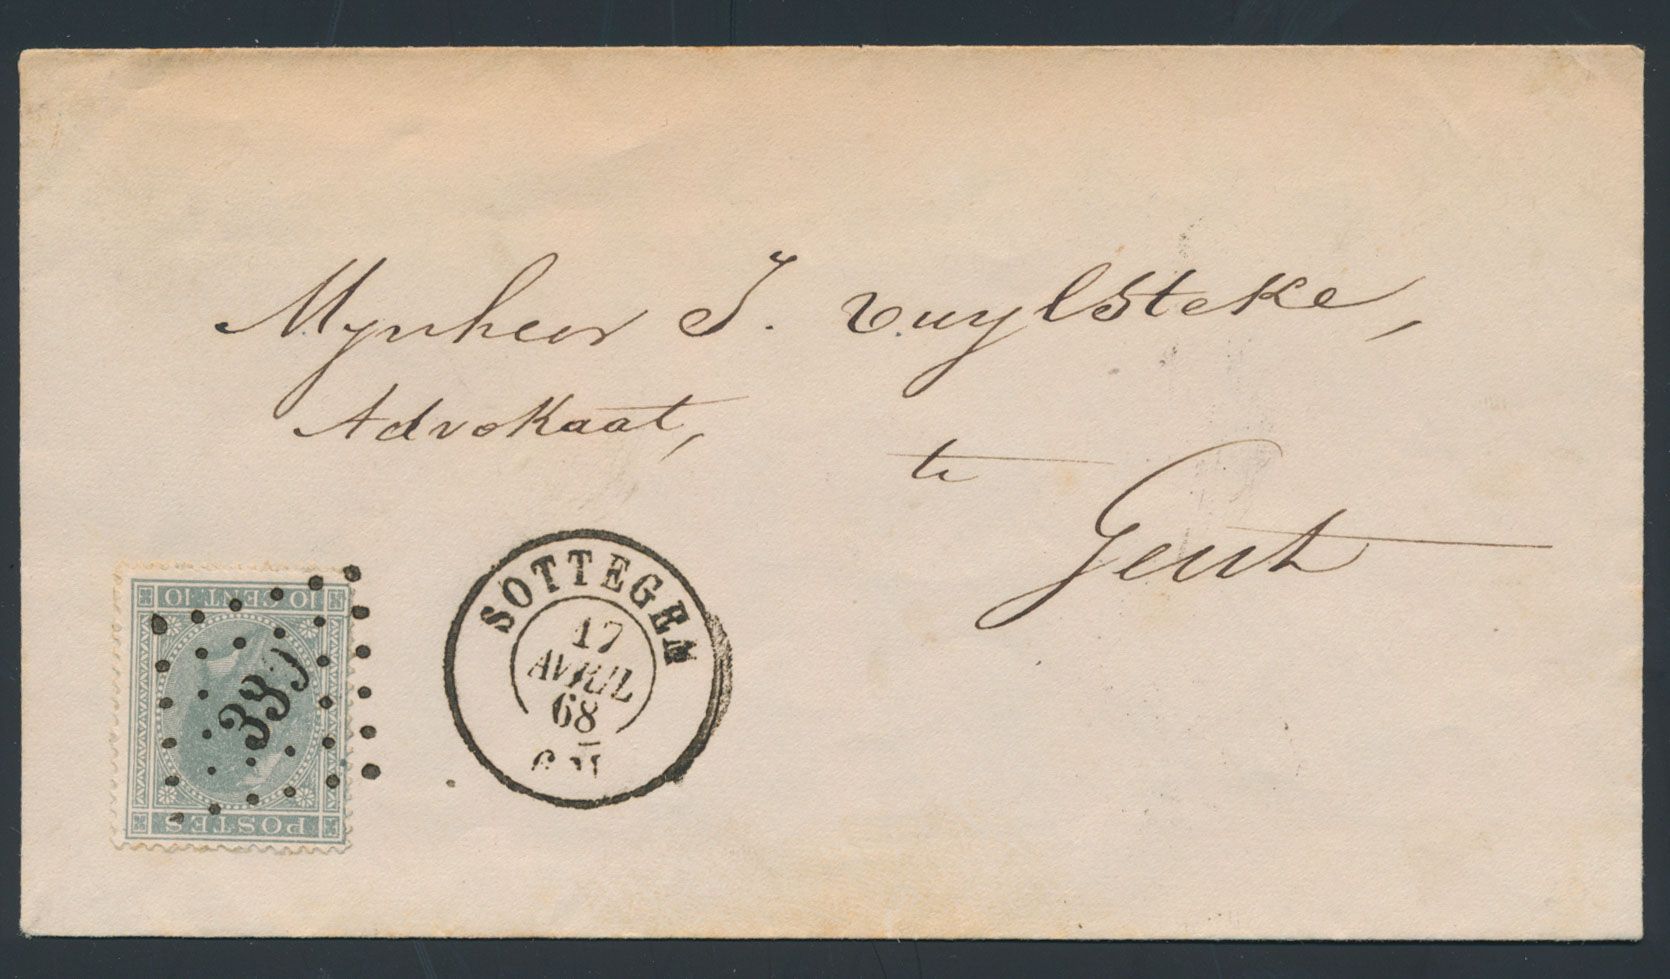 Mynheer J. Vuylsteke,
Advokaat,
te
Gent
SOTTEGEM
17
AVRIL
68
10 CENT. 10
POSTES